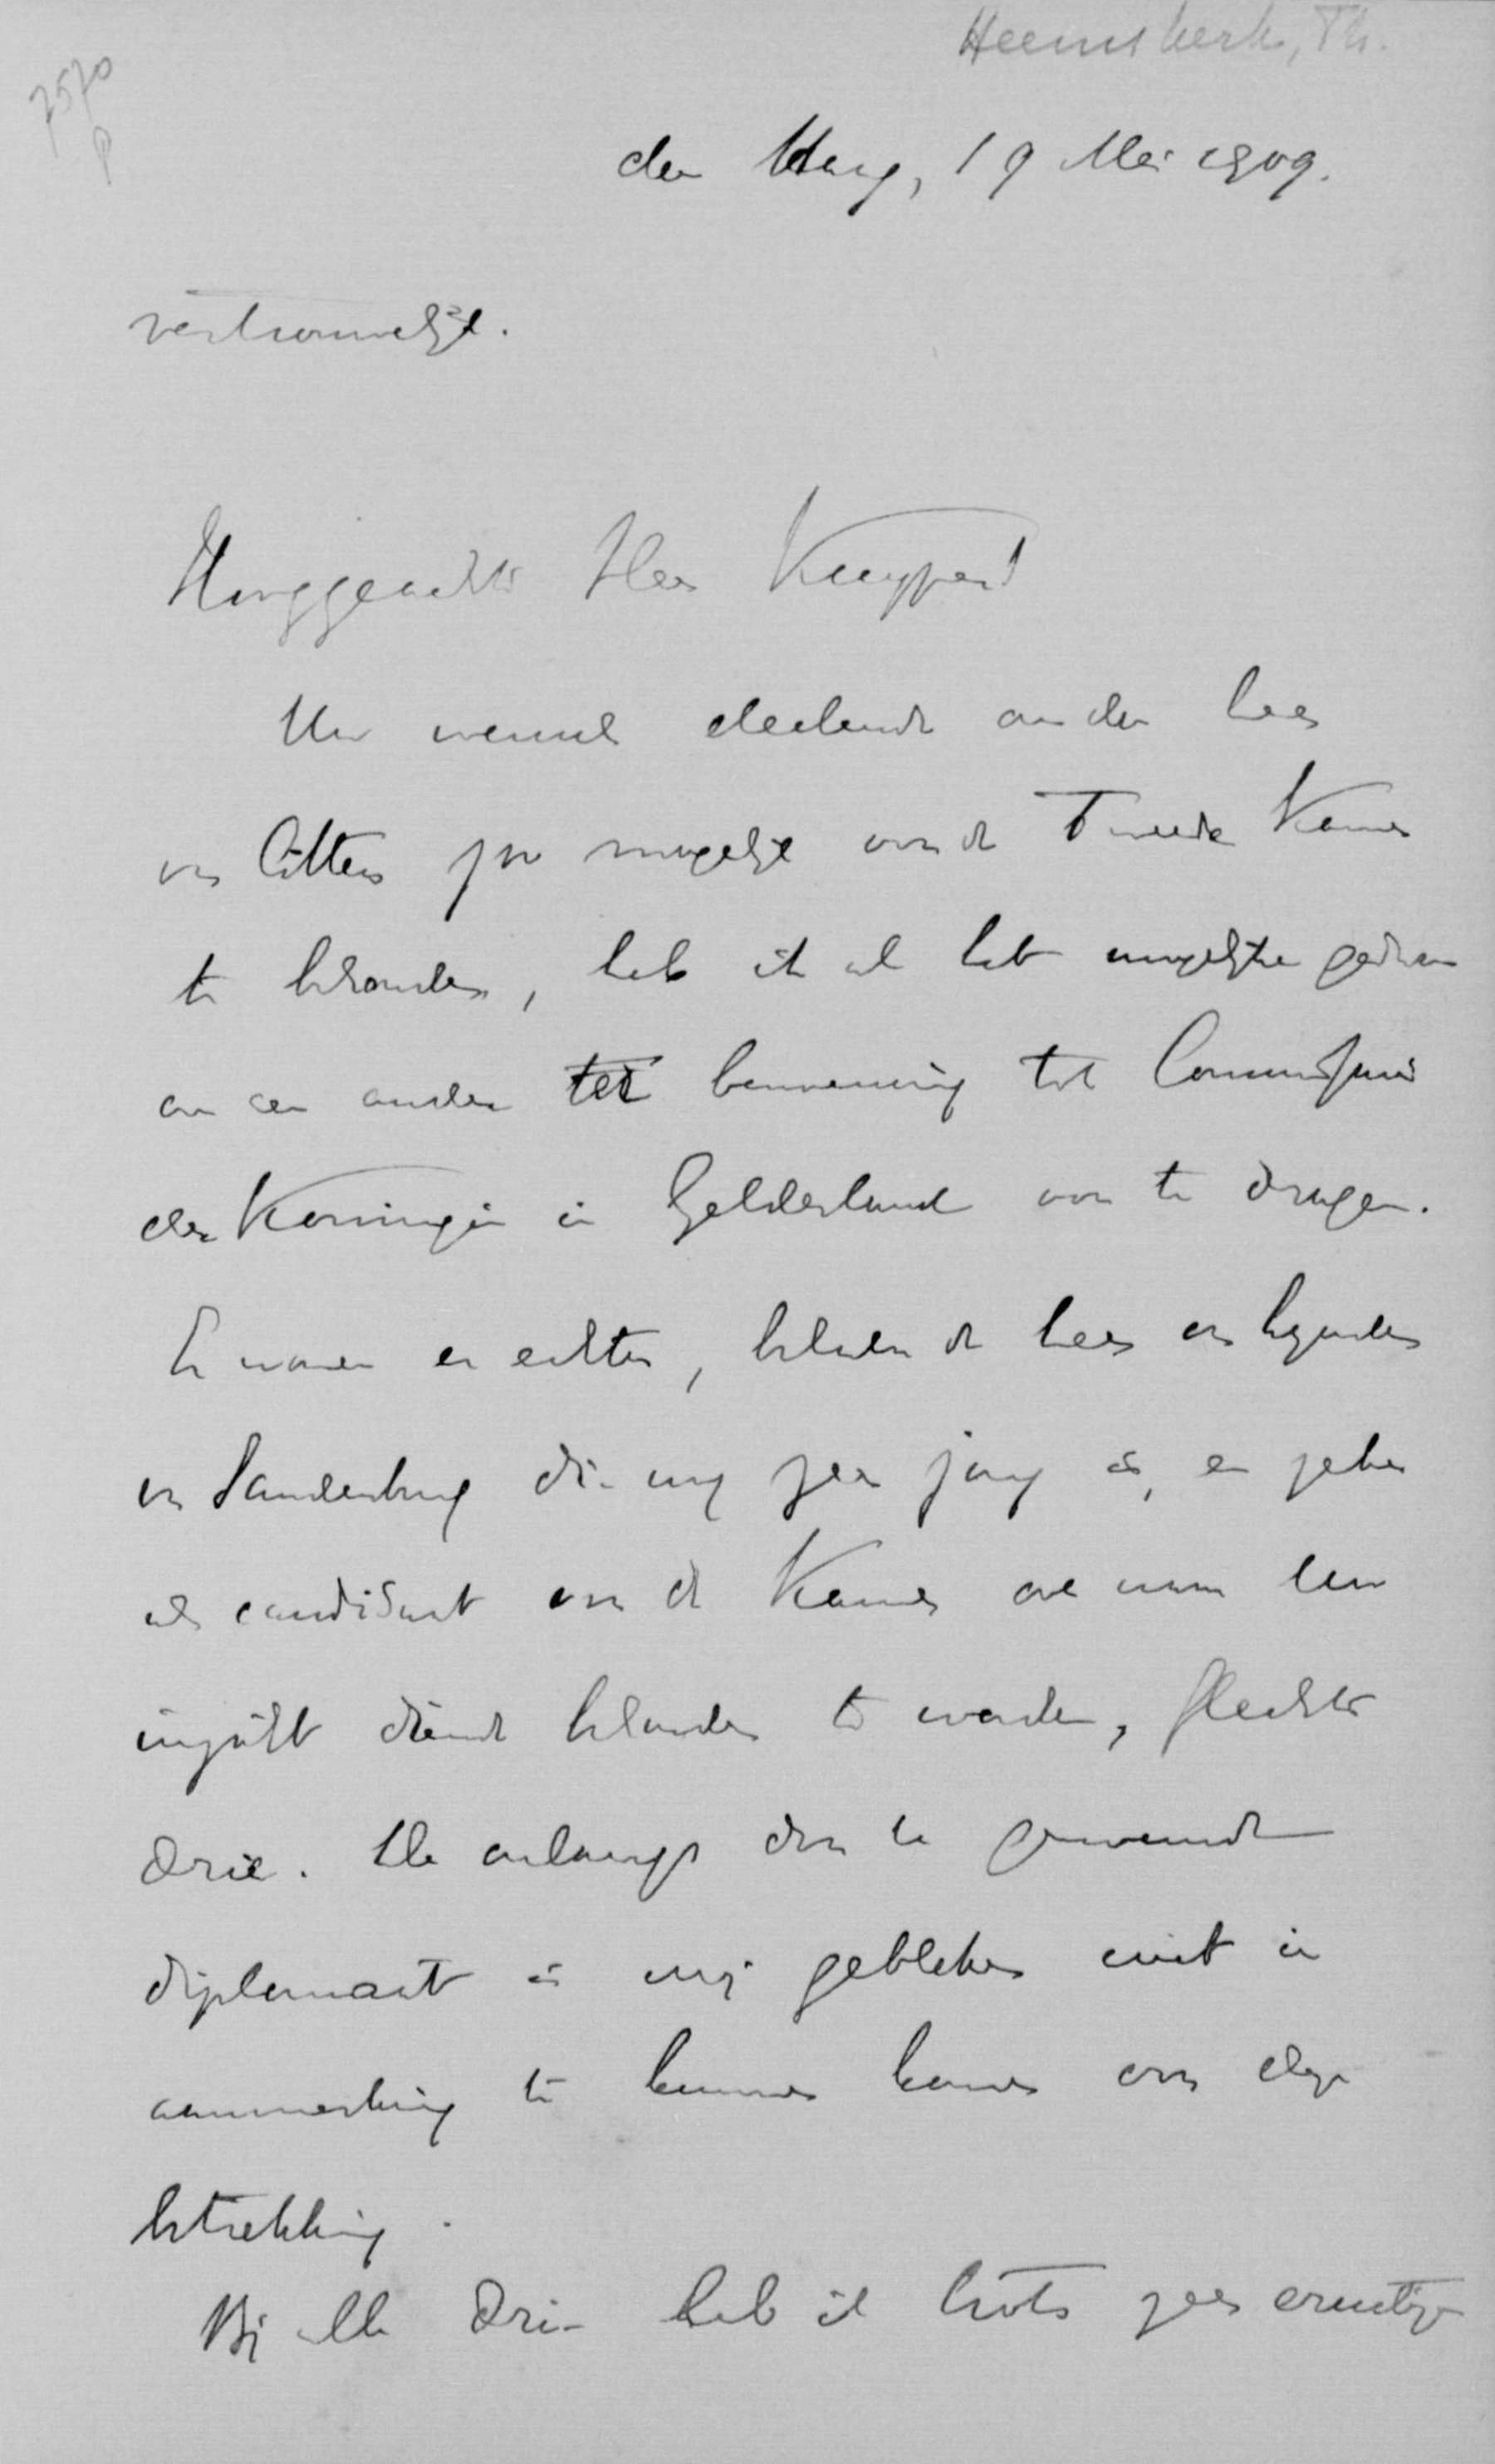 Heemskerk, Th.
7570
P
den Haag, 19 Mei 1909.
vertrouwelijk.
Hooggeachte Heer Kuyper!
Uw wensch deelende om den heer
van Citters zoo mogelijk voor de Tweede Kamer
te behouden, heb ik al het mogelijke gedaan
om een ander ter benoeming tot Commissaris
der Koningin in Gelderland voor te dragen.
Er waren er echter, behalve de heer van
van Sandenburg die nog zeer jong is, en zeker
als candidaat voor de Kamer ook naar Uw
inzicht diende behouden te worden, slechts
drie. De onlangs door U genoemde
diplomaat is mij gebleken niet in
aanmerking te kunnen komen voor deze
betrekking.
Bij alle drie heb ik trots zeer ernstige